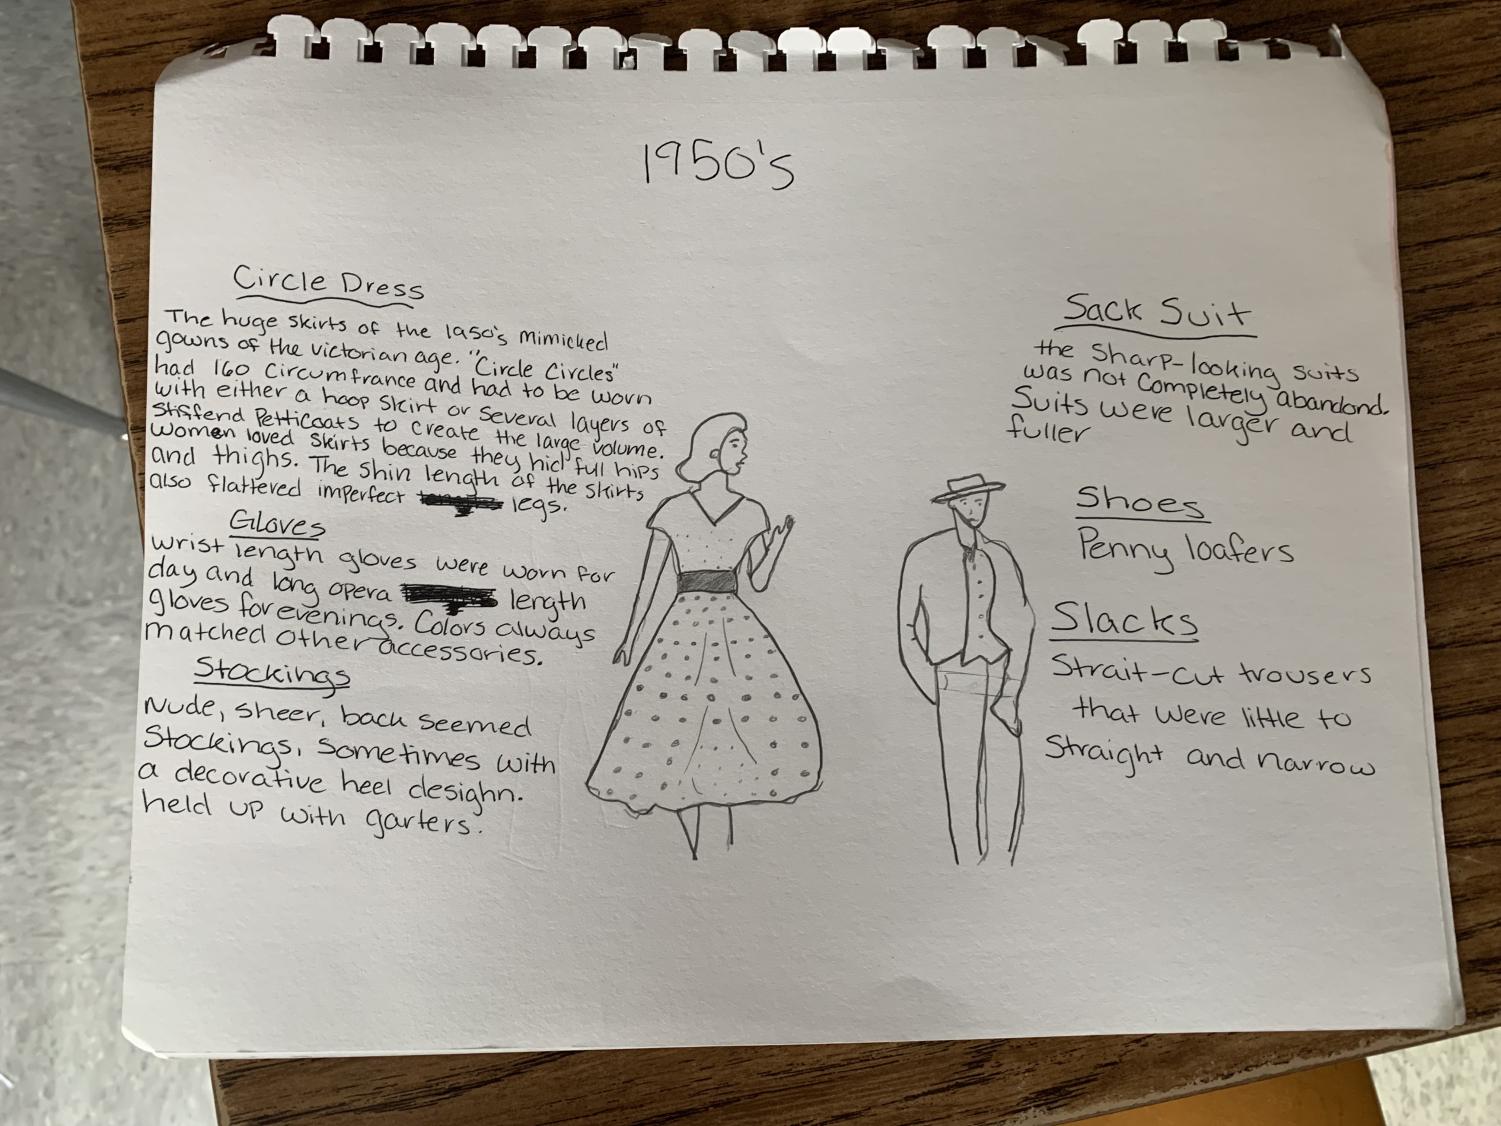 1950's
Circle Dress
The huge skirts of the 1950's mimicked
gowns of the victorian age. "Circle Circles"
had 160 circumfrance and had to be worn
with either a hoop skirt or several layers of
stiffend Petticoats to create the large volume.
women loved skirts because they hid full hips
and thighs. The shin length of the skirts
also flattered imperfect legs.
Gloves
wrist length gloves were worn for
day and long opera length
gloves for evenings. Colors always
matched other accessories.
Stockings
Nude, sheer, back seemed
Stockings, sometimes with
a decorative heel desighn.
held up with garters.
Sack Suit
the sharp-looking suits
was not completely abandond.
Suits were larger and
fuller
Shoes
Penny loafers
Slacks
Strait-cut trousers
that were little to
straight and narrow